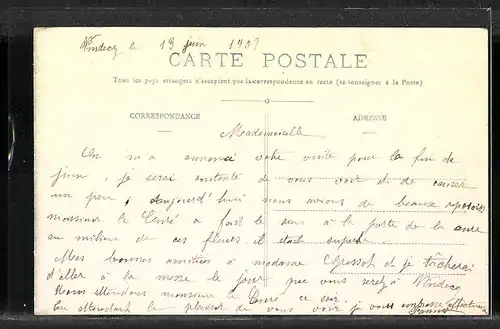 Windecq le 13 juin 1907
CARTE POSTALE
Tous les pays étrangers n'acceptent pas la correspondance au recto (se renseigner à la Poste)
CORRESPONDANCE
ADRESSE
Mademoiselle
On m'a annoncé votre visite pour la fin de
juin, je serai contente de vous voir et de causer
un peu, aujourd'hui nous avions de beaux reposoirs
monsieur le Curé a fait le sien à la porte de la cure
au milieu de ces fleurs il était superbe.
Mes bonnes amitiés à madame et je tâcherai
d'aller à la messe le jour que vous serez à Windecq
Nous attendons monsieur le Curé ce soir.
En attendant le plaisir de vous voir je vous embrasse affectueusement